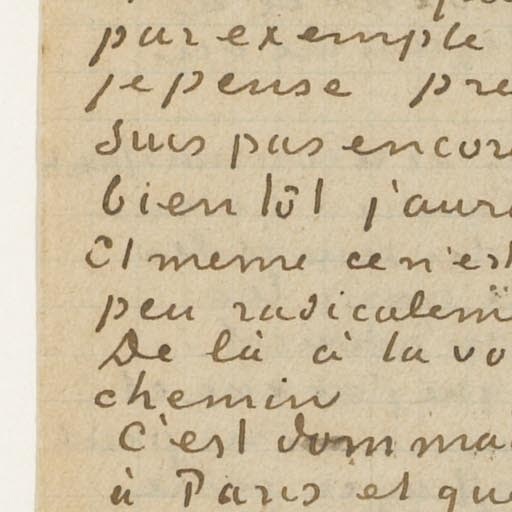 par exemple
je pense pre
suis pas encor
bientôt j'aura
Et meme ce n'est
peu radicalem
De là à la vo
chemin
C'est domma
à Paris et que